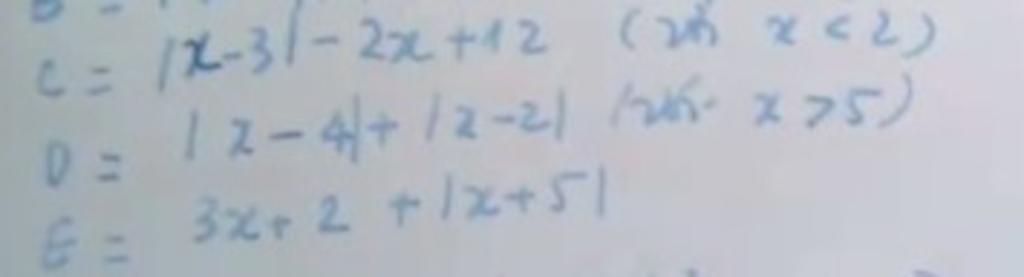 C = |x-3| - 2x + 12 (với x < 2)
D = |x - 4| + |x - 2| (với x > 5)
E = 3x + 2 + |x + 5|